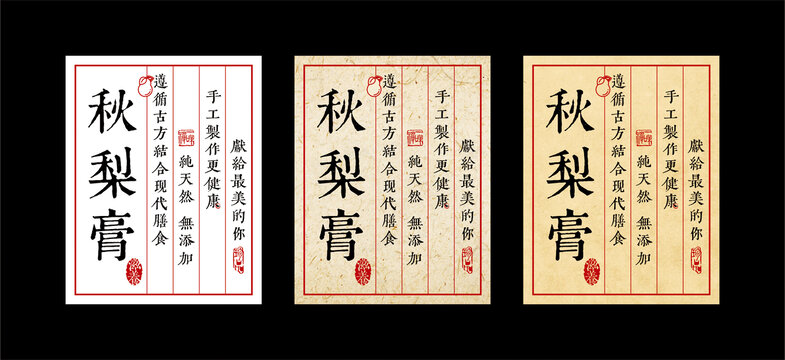 獻給最美的你
手工製作更健康
純天然 無添加
遵循古方結合现代膳食
秋梨膏
獻給最美的你
手工製作更健康
純天然 無添加
遵循古方結合现代膳食
秋梨膏
獻給最美的你
手工製作更健康
純天然 無添加
遵循古方結合现代膳食
秋梨膏